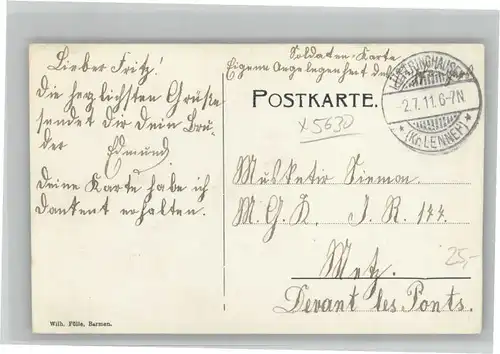 Lieber Fritz!
Die herzlichsten Grüße
sendet dir dein Bru-
der
Edmund.
Deine Karte habe ich
dankent erhalten.
Soldaten-Karte
Eigene Angelegenheit des
POSTKARTE.
x5630
2.7.11.6-7N
* (Kr. LENNEP) *
Musketir Siemon.
M. G. K. J. R. 144.
Metz.
Devant les Ponts.
25,-
Wilh. Fülle, Barmen.